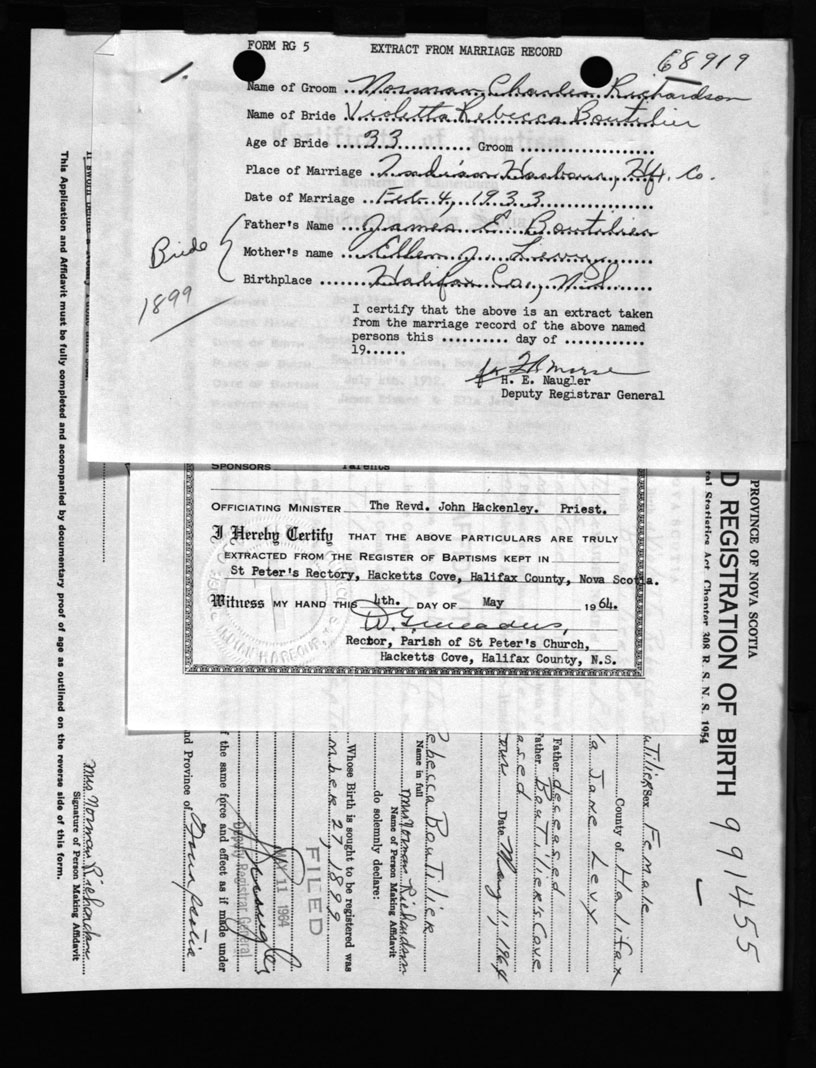 FORM RG 5 EXTRACT FROM MARRIAGE RECORD 68919
1.
Name of Groom ..Norman Charles Richardson
Name of Bride Violetta Rebecca Boutilier
Age of Bride ...33............ Groom ......................
Place of Marriage . Harbour, Hfx. Co.
Date of Marriage ..Feb. 4, 1933......................
Father's Name ...James E. Boutilier
Mother's name ...Ellen J. Levy.......
Birthplace .......Halifax Co., N.S.......
Bride
1899
I certify that the above is an extract taken
from the marriage record of the above named
persons this .......... day of ............
19......
for Morse
H. E. Naugler
Deputy Registrar General
SPONSORS Parents
OFFICIATING MINISTER The Revd. John Hackenley. Priest.
I Hereby Certify THAT THE ABOVE PARTICULARS ARE TRULY
EXTRACTED FROM THE REGISTER OF BAPTISMS KEPT IN
St Peter's Rectory, Hacketts Cove, Halifax County, Nova Scotia.
Witness MY HAND THIS 4th. DAY OF May 1964.
Rector, Parish of St Peter's Church,
Hacketts Cove, Halifax County, N.S.
PROVINCE OF NOVA SCOTIA
D REGISTRATION OF BIRTH 991455
ral Statistics Act, Chapter 308 R. S. N. S. 1954
utilier Sex Female
County of Halifax
la Jane Levy
Father deceased
Father Boutiliers Cove
ased
Date May 11, 1964
ebecca Boutilier
Name in full
Mrs Norman Richardson
Name of Person Making Affidavit
do solemnly declare:
Whose Birth is sought to be registered was
mber 27, 1899
FILED
MAY 11 1964
Deputy Registrar General
f the same force and effect as if made under
nd Province of
Mrs Norman Richardson
Signature of Person Making Affidavit
This Application and Affidavit must be fully completed and accompanied by documentary proof of age as outlined on the reverse side of this form.